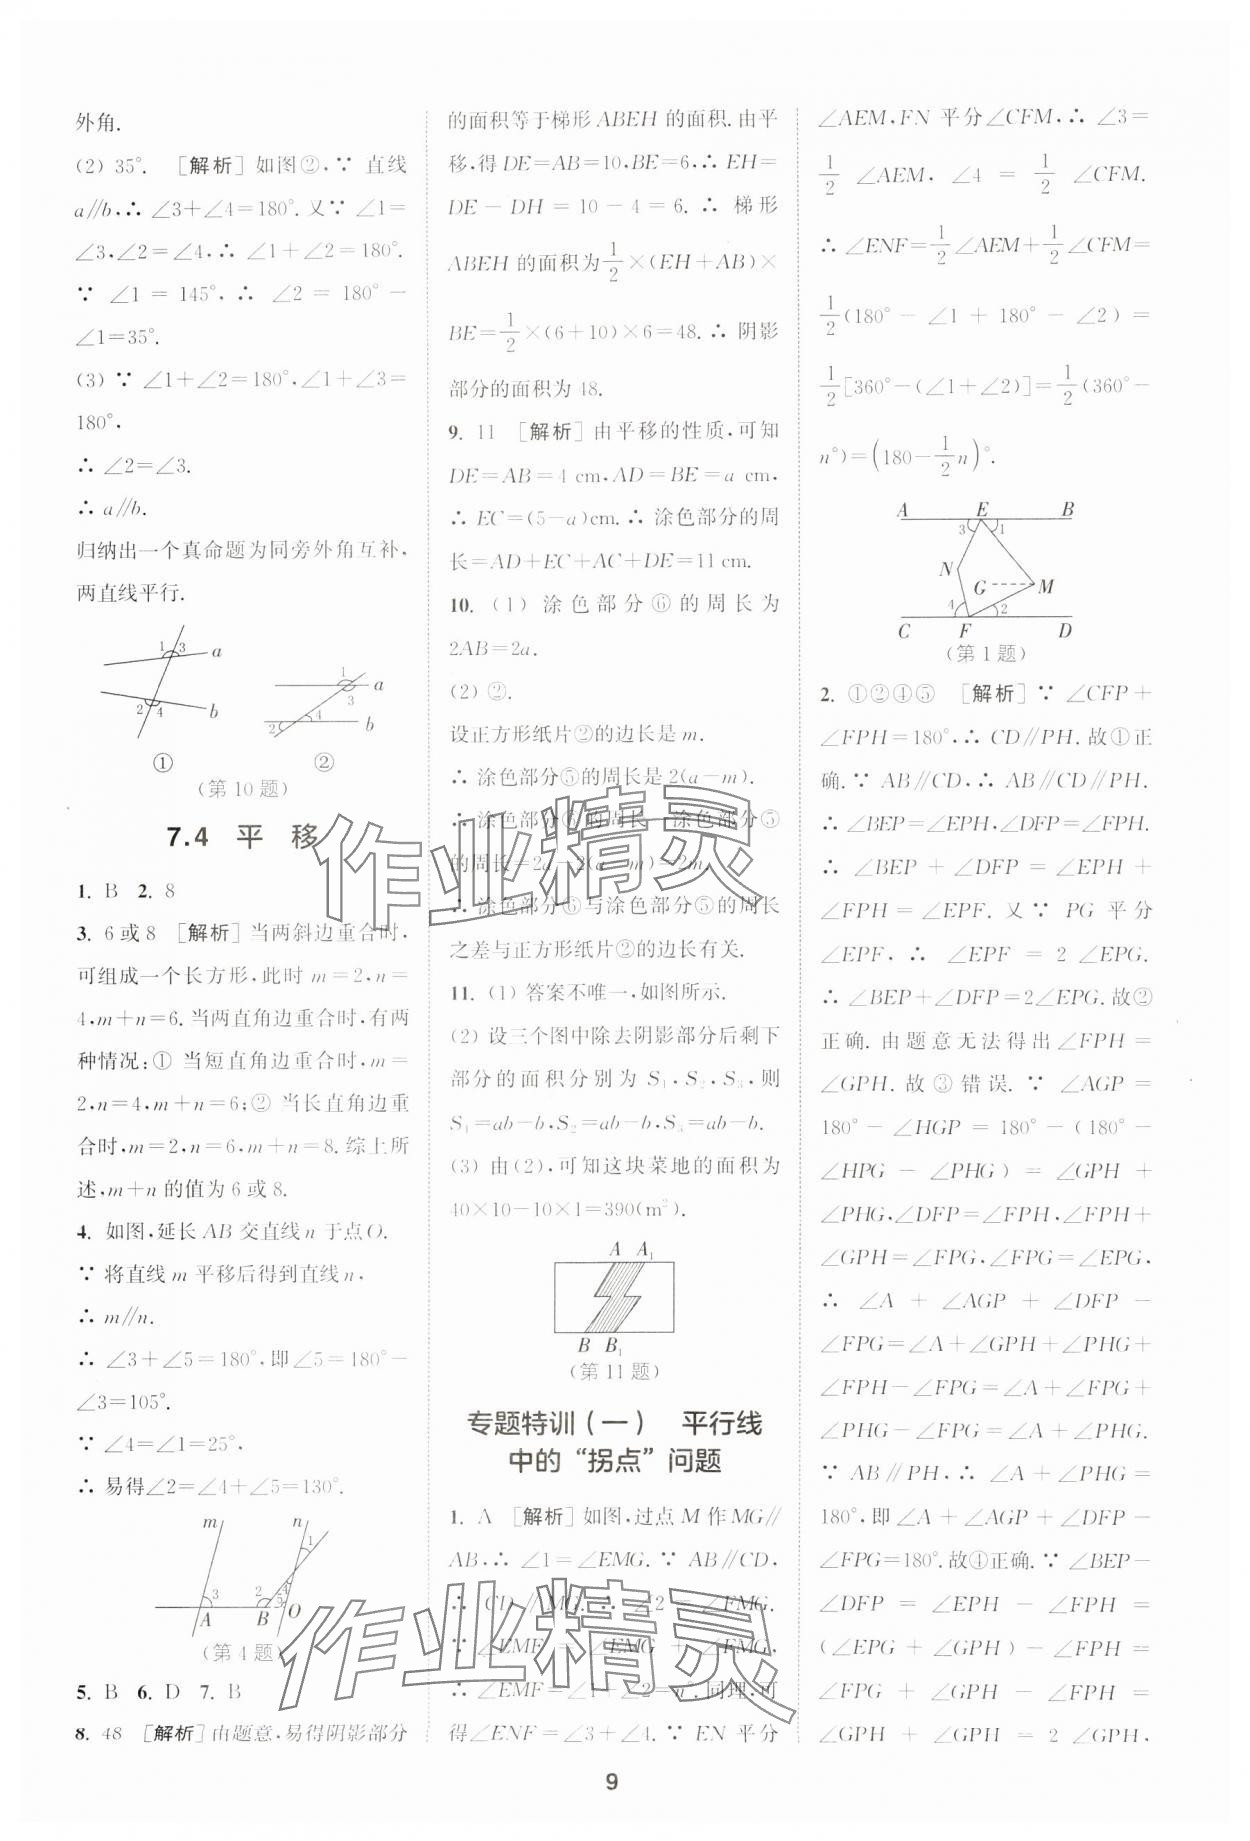 外角.
(2) 35°. [解析]如图②,∵ 直线
a∥b,∴ ∠3+∠4=180°.又∵ ∠1=
∠3,∠2=∠4,∴ ∠1+∠2=180°.
∵ ∠1 = 145°,∴ ∠2 = 180° −
∠1=35°.
(3) ∵ ∠1+∠2=180°,∠1+∠3=
180°,
∴ ∠2=∠3.
∴ a∥b.
归纳出一个真命题为同旁外角互补,
两直线平行.
1 3 a
2 4 b
①
1 a
3
2 4 b
②
(第 10 题)
7.4 平 移
1. B 2. 8
3. 6或8 [解析]当两斜边重合时,
可组成一个长方形,此时 m=2,n=
4,m+n=6.当两直角边重合时,有两
种情况:① 当短直角边重合时,m=
2,n=4,m+n=6;② 当长直角边重
合时,m=2,n=6,m+n=8.综上所
述,m+n 的值为 6 或 8.
4. 如图,延长 AB 交直线 n 于点 O.
∵ 将直线 m 平移后得到直线 n,
∴ m∥n.
∴ ∠3+∠5=180°,即∠5=180°−
∠3=105°.
∵ ∠4=∠1=25°,
∴ 易得∠2=∠4+∠5=130°.
m n
1
3 2 4 5
A B O
(第 4 题)
5. B 6. D 7. B
8. 48 [解析]由题意,易得阴影部分
的面积等于梯形 ABEH 的面积.由平
移,得 DE=AB=10,BE=6,∴ EH=
DE − DH = 10 − 4 = 6. ∴ 梯形
ABEH 的面积为1/2×(EH+AB)×
BE=1/2×(6+10)×6=48.∴ 阴影
部分的面积为 48.
9. 11 [解析]由平移的性质,可知
DE=AB=4 cm,AD=BE=a cm,
∴ EC=(5−a)cm.∴ 涂色部分的周
长=AD+EC+AC+DE=11 cm.
10. (1) 涂色部分⑥的周长为
2AB=2a.
(2) ②.
设正方形纸片②的边长是 m.
∴ 涂色部分⑤的周长是 2(a−m).
∴ 涂色部分⑥的周长−涂色部分⑤
的周长=2a−2(a−m)=2m.
∴ 涂色部分⑥与涂色部分⑤的周长
之差与正方形纸片②的边长有关.
11. (1) 答案不唯一,如图所示.
(2) 设三个图中除去阴影部分后剩下
部分的面积分别为 S₁,S₂,S₃,则
S₁=ab−b,S₂=ab−b,S₃=ab−b.
(3) 由(2),可知这块菜地的面积为
40×10−10×1=390(m²).
A A₁
B B₁
(第 11 题)
专题特训(一) 平行线
中的“拐点”问题
1. A [解析]如图,过点 M 作 MG∥
AB,∴ ∠1=∠EMG.∵ AB∥CD,
∴ CD∥MG.∴ ∠2 = ∠FMG.
∵ ∠EMF = ∠EMG + ∠FMG,
∴ ∠EMF=∠1+∠2=n°.同理,可
得∠ENF=∠3+∠4.∵ EN 平分
∠AEM,FN 平分∠CFM,∴ ∠3=
1/2 ∠AEM, ∠4 = 1/2 ∠CFM.
∴ ∠ENF=1/2∠AEM+1/2∠CFM=
1/2(180° − ∠1 + 180° − ∠2) =
1/2[360°−(∠1+∠2)]=1/2(360°−
n°)=(180−1/2n)°.
A E B
3 1
N
G M
4 2
C F D
(第 1 题)
2. ①②④⑤ [解析]∵ ∠CFP+
∠FPH=180°,∴ CD∥PH.故①正
确.∵ AB∥CD,∴ AB∥CD∥PH.
∴ ∠BEP=∠EPH,∠DFP=∠FPH.
∴ ∠BEP + ∠DFP = ∠EPH +
∠FPH = ∠EPF. 又 ∵ PG 平分
∠EPF,∴ ∠EPF = 2 ∠EPG.
∴ ∠BEP+∠DFP=2∠EPG.故②
正确.由题意无法得出∠FPH=
∠GPH.故③错误.∵ ∠AGP =
180° − ∠HGP = 180° − (180° −
∠HPG − ∠PHG) = ∠GPH +
∠PHG,∠DFP=∠FPH,∠FPH+
∠GPH=∠FPG,∠FPG=∠EPG,
∴ ∠A + ∠AGP + ∠DFP −
∠FPG=∠A+∠GPH+∠PHG+
∠FPH−∠FPG=∠A+∠FPG+
∠PHG − ∠FPG = ∠A + ∠PHG.
∵ AB∥PH,∴ ∠A + ∠PHG =
180°,即∠A + ∠AGP + ∠DFP −
∠FPG=180°.故④正确.∵ ∠BEP−
∠DFP = ∠EPH − ∠FPH =
(∠EPG + ∠GPH) − ∠FPH =
∠FPG + ∠GPH − ∠FPH =
∠GPH + ∠GPH = 2 ∠GPH,
9
作业精灵
作业精灵